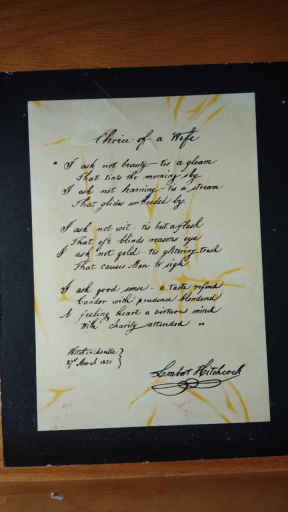 Choice of a Wife
" I ask not beauty - tis a gleam
That tints the morning sky
I ask not learning - tis a stream
That glides unheeded by.
I ask not wit - tis but a flash
That oft blinds reasons eye
I ask not gold - tis glittering trash
That causes Man to sigh
I ask good sense - a taste refined
Candor with prudence blendend
A feeling heart a virtuous mind
With charity attended "
March
Lambert Hitchcock